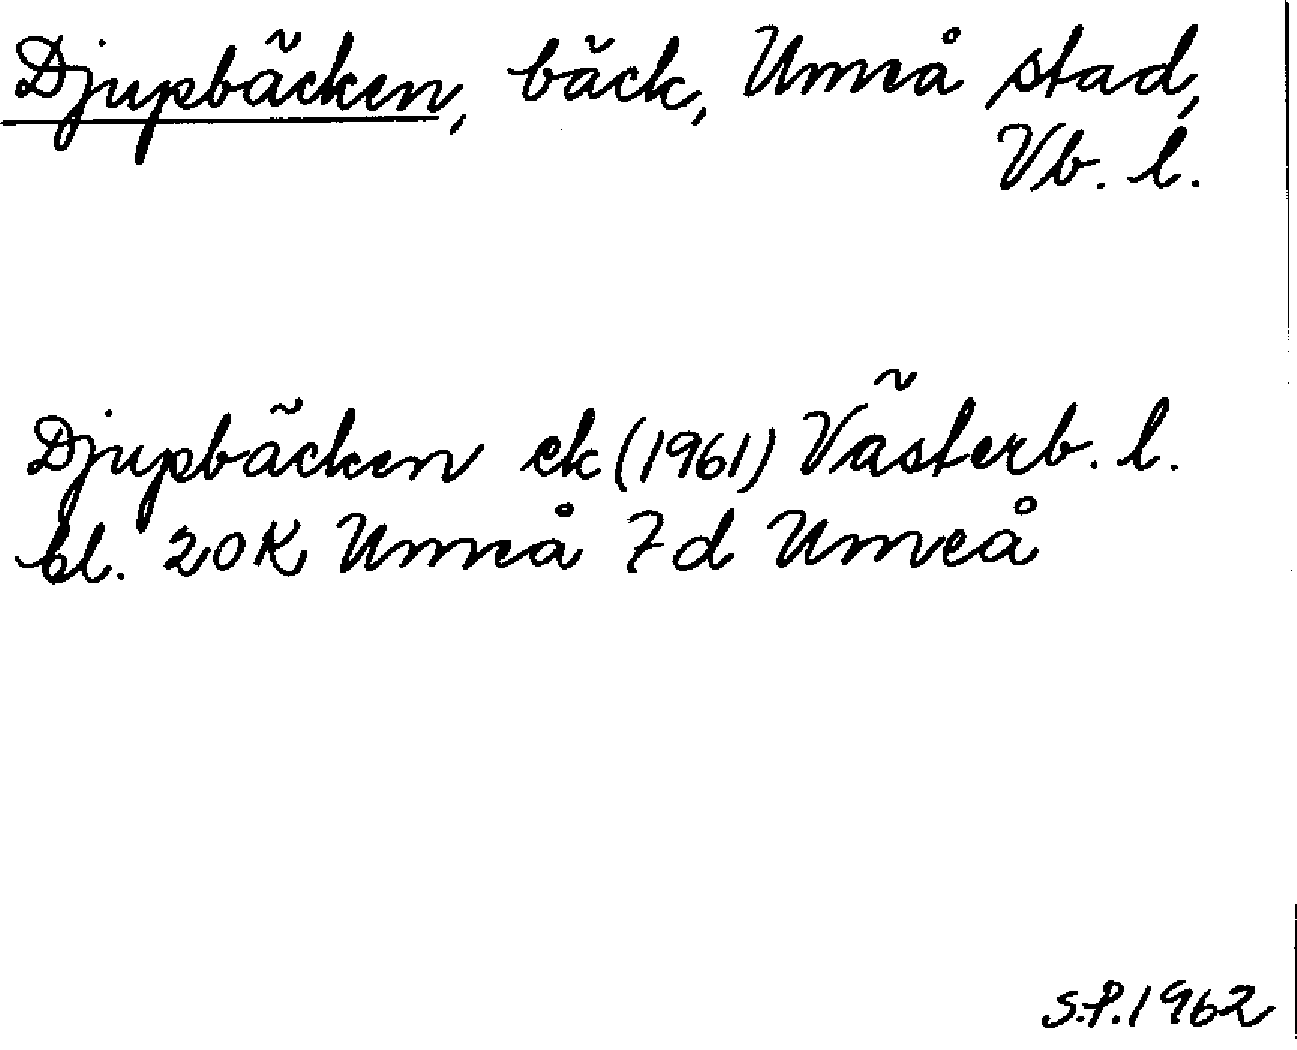 Djupbäcken, bäck, Umeå stad,
Vb. l.
Djupbäcken ek (1961) Västerb. l.
bl. 20K Umeå 7d Umeå
S.P. 1962